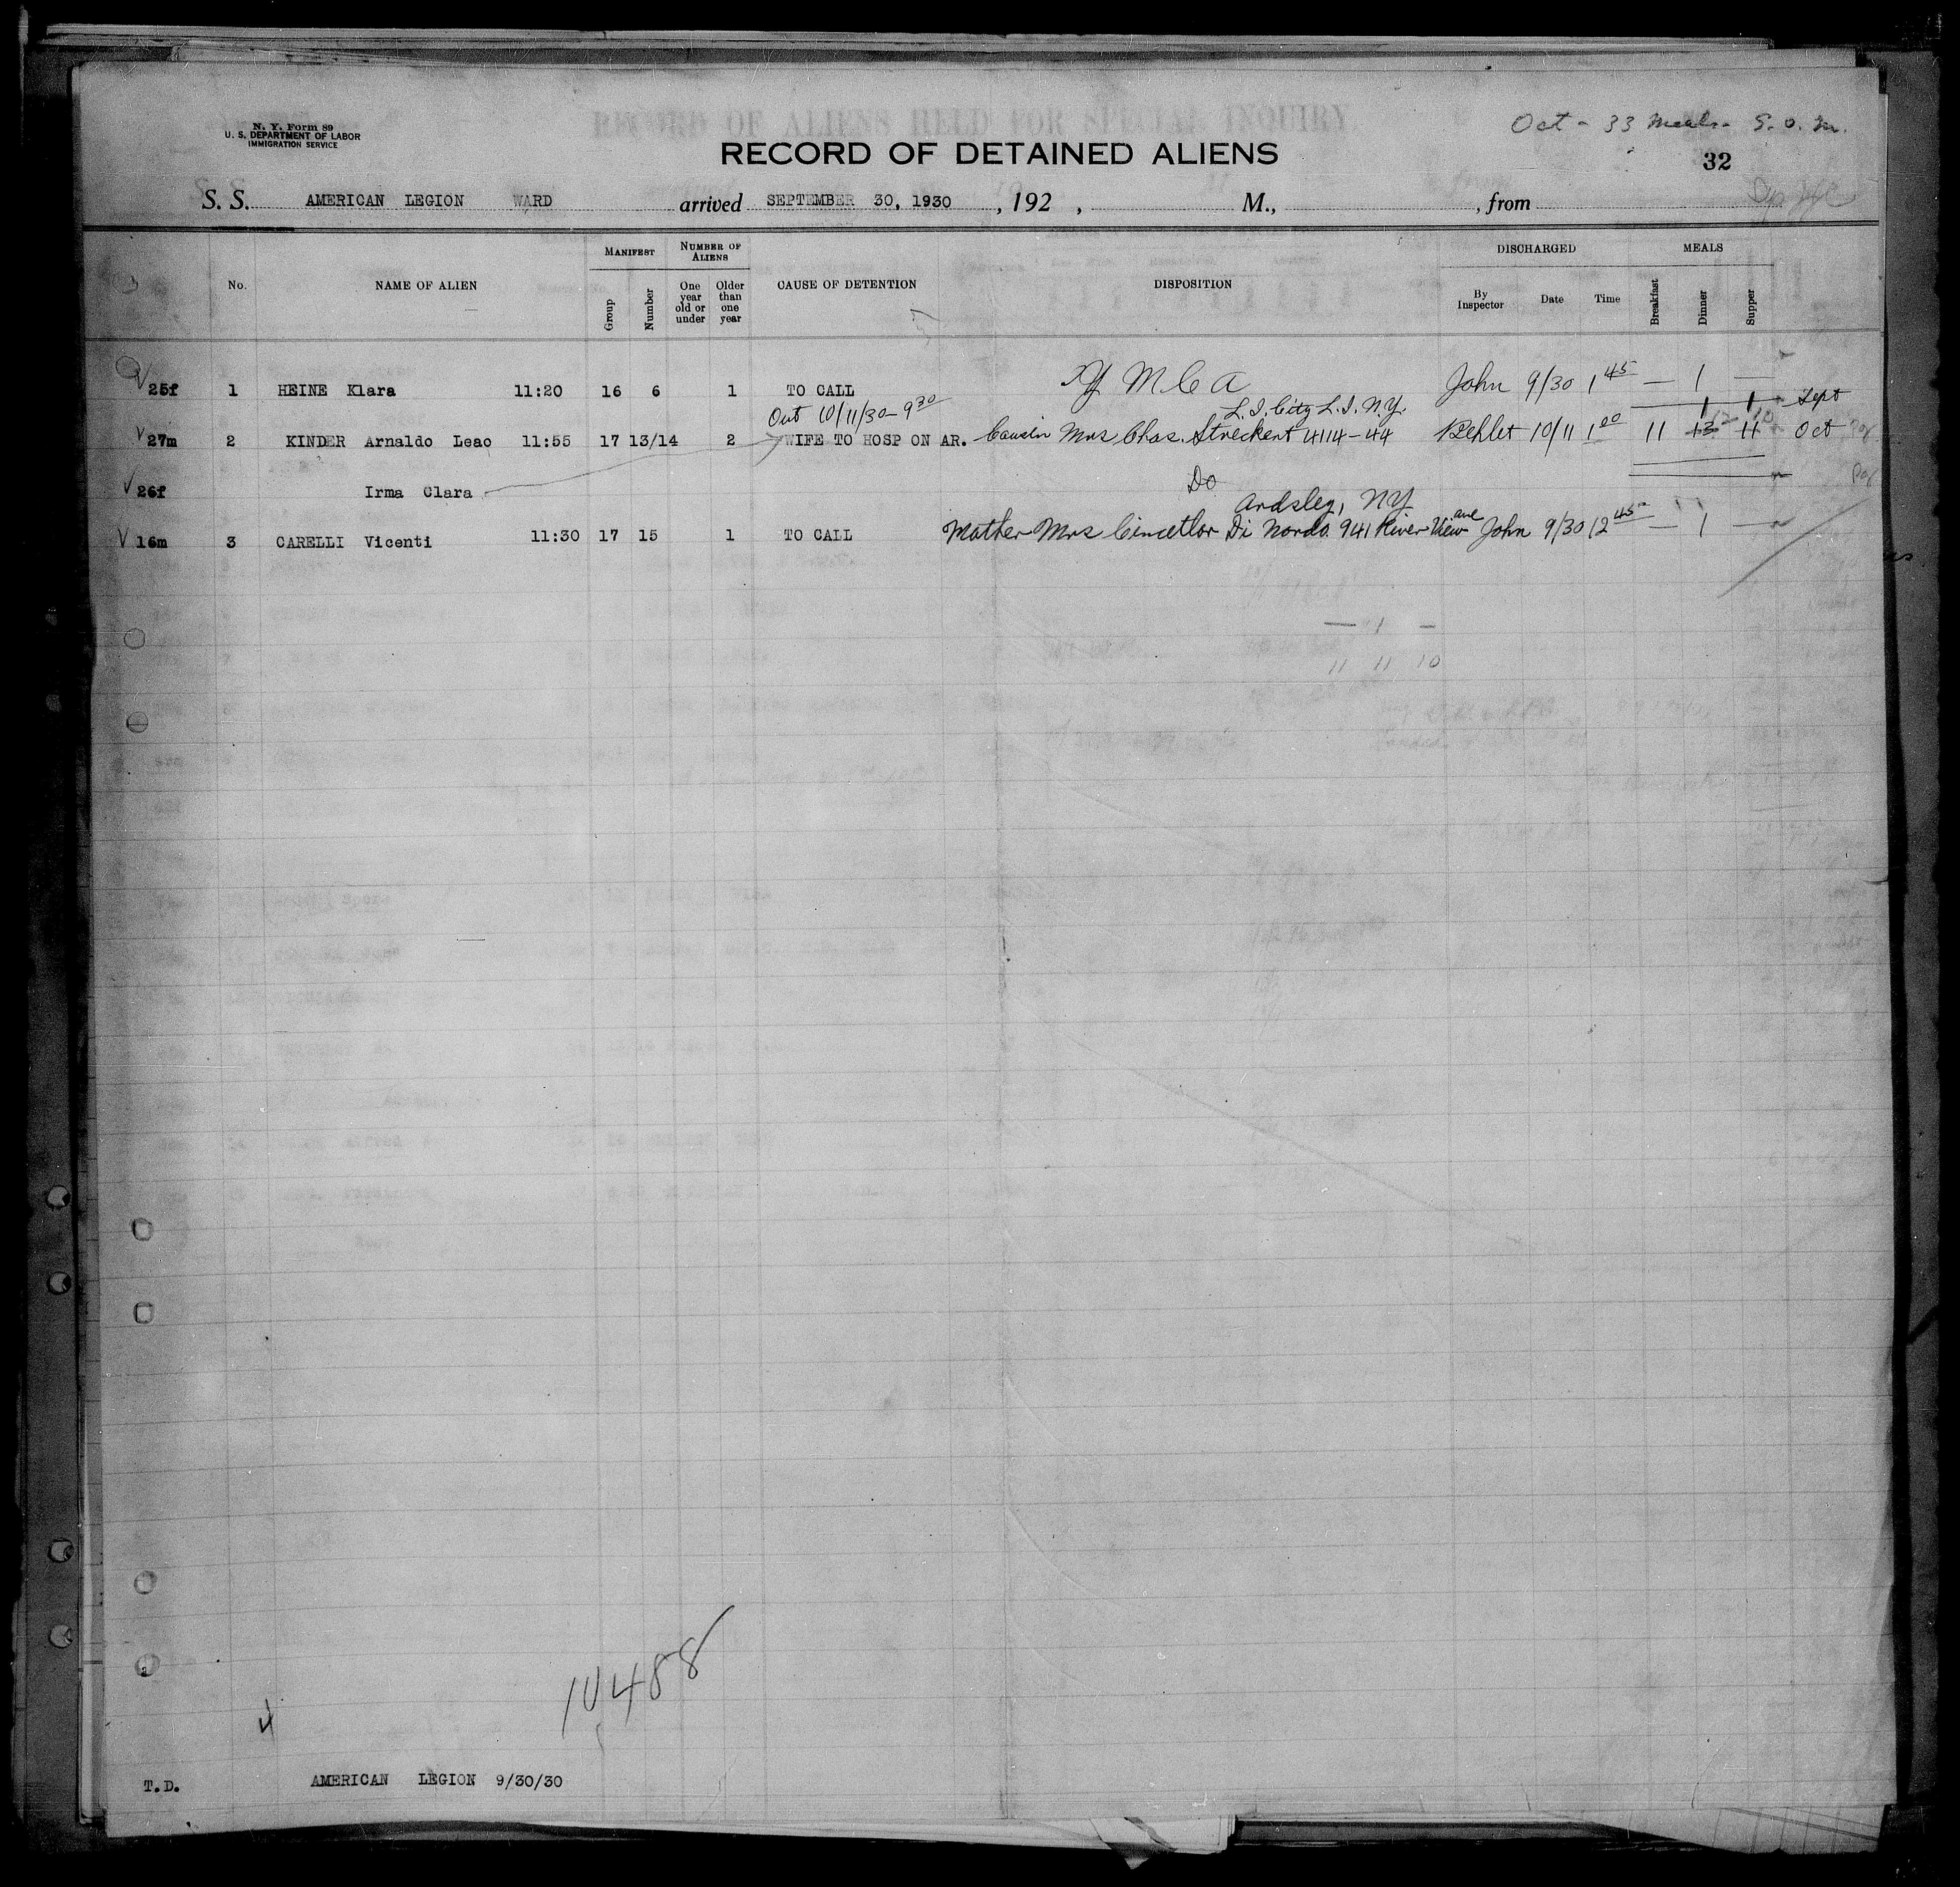 N. Y. Form 89
U. S. DEPARTMENT OF LABOR
IMMIGRATION SERVICE
RECORD OF ALIENS HELD FOR SPECIAL INQUIRY
Oct - 33 Meals - S. O. M.
RECORD OF DETAINED ALIENS
32
S. S. AMERICAN LEGION WARD arrived SEPTEMBER 30, 1930 , 192 , M., , from
No. NAME OF ALIEN MANIFEST Group Number NUMBER OF ALIENS One year old or under Older than one year CAUSE OF DETENTION DISPOSITION DISCHARGED By Inspector Date Time MEALS Breakfast Dinner Supper
25f 1 HEINE Klara 11:20 16 6 1 TO CALL Y M C A John 9/30 1 45 — 1 —
Out 10/11/30 - 9 30 L. I. City L. I. N.Y. 1 1 Sept
27m 2 KINDER Arnaldo Leao 11:55 17 13/14 2 WIFE TO HOSP ON AR. Cousin Mrs Chas. Streckert 4114-44 10/11 1 00 11 13 11 Oct
26f Irma Clara Do
Ardsley, NY
16m 3 CARELLI Vicenti 11:30 17 15 1 TO CALL Mother Mrs Di Nardo. 941 River View ave John 9/30 12 45 — 1 —
— 1 —
11 11 10
10488
4
T.D. AMERICAN LEGION 9/30/30